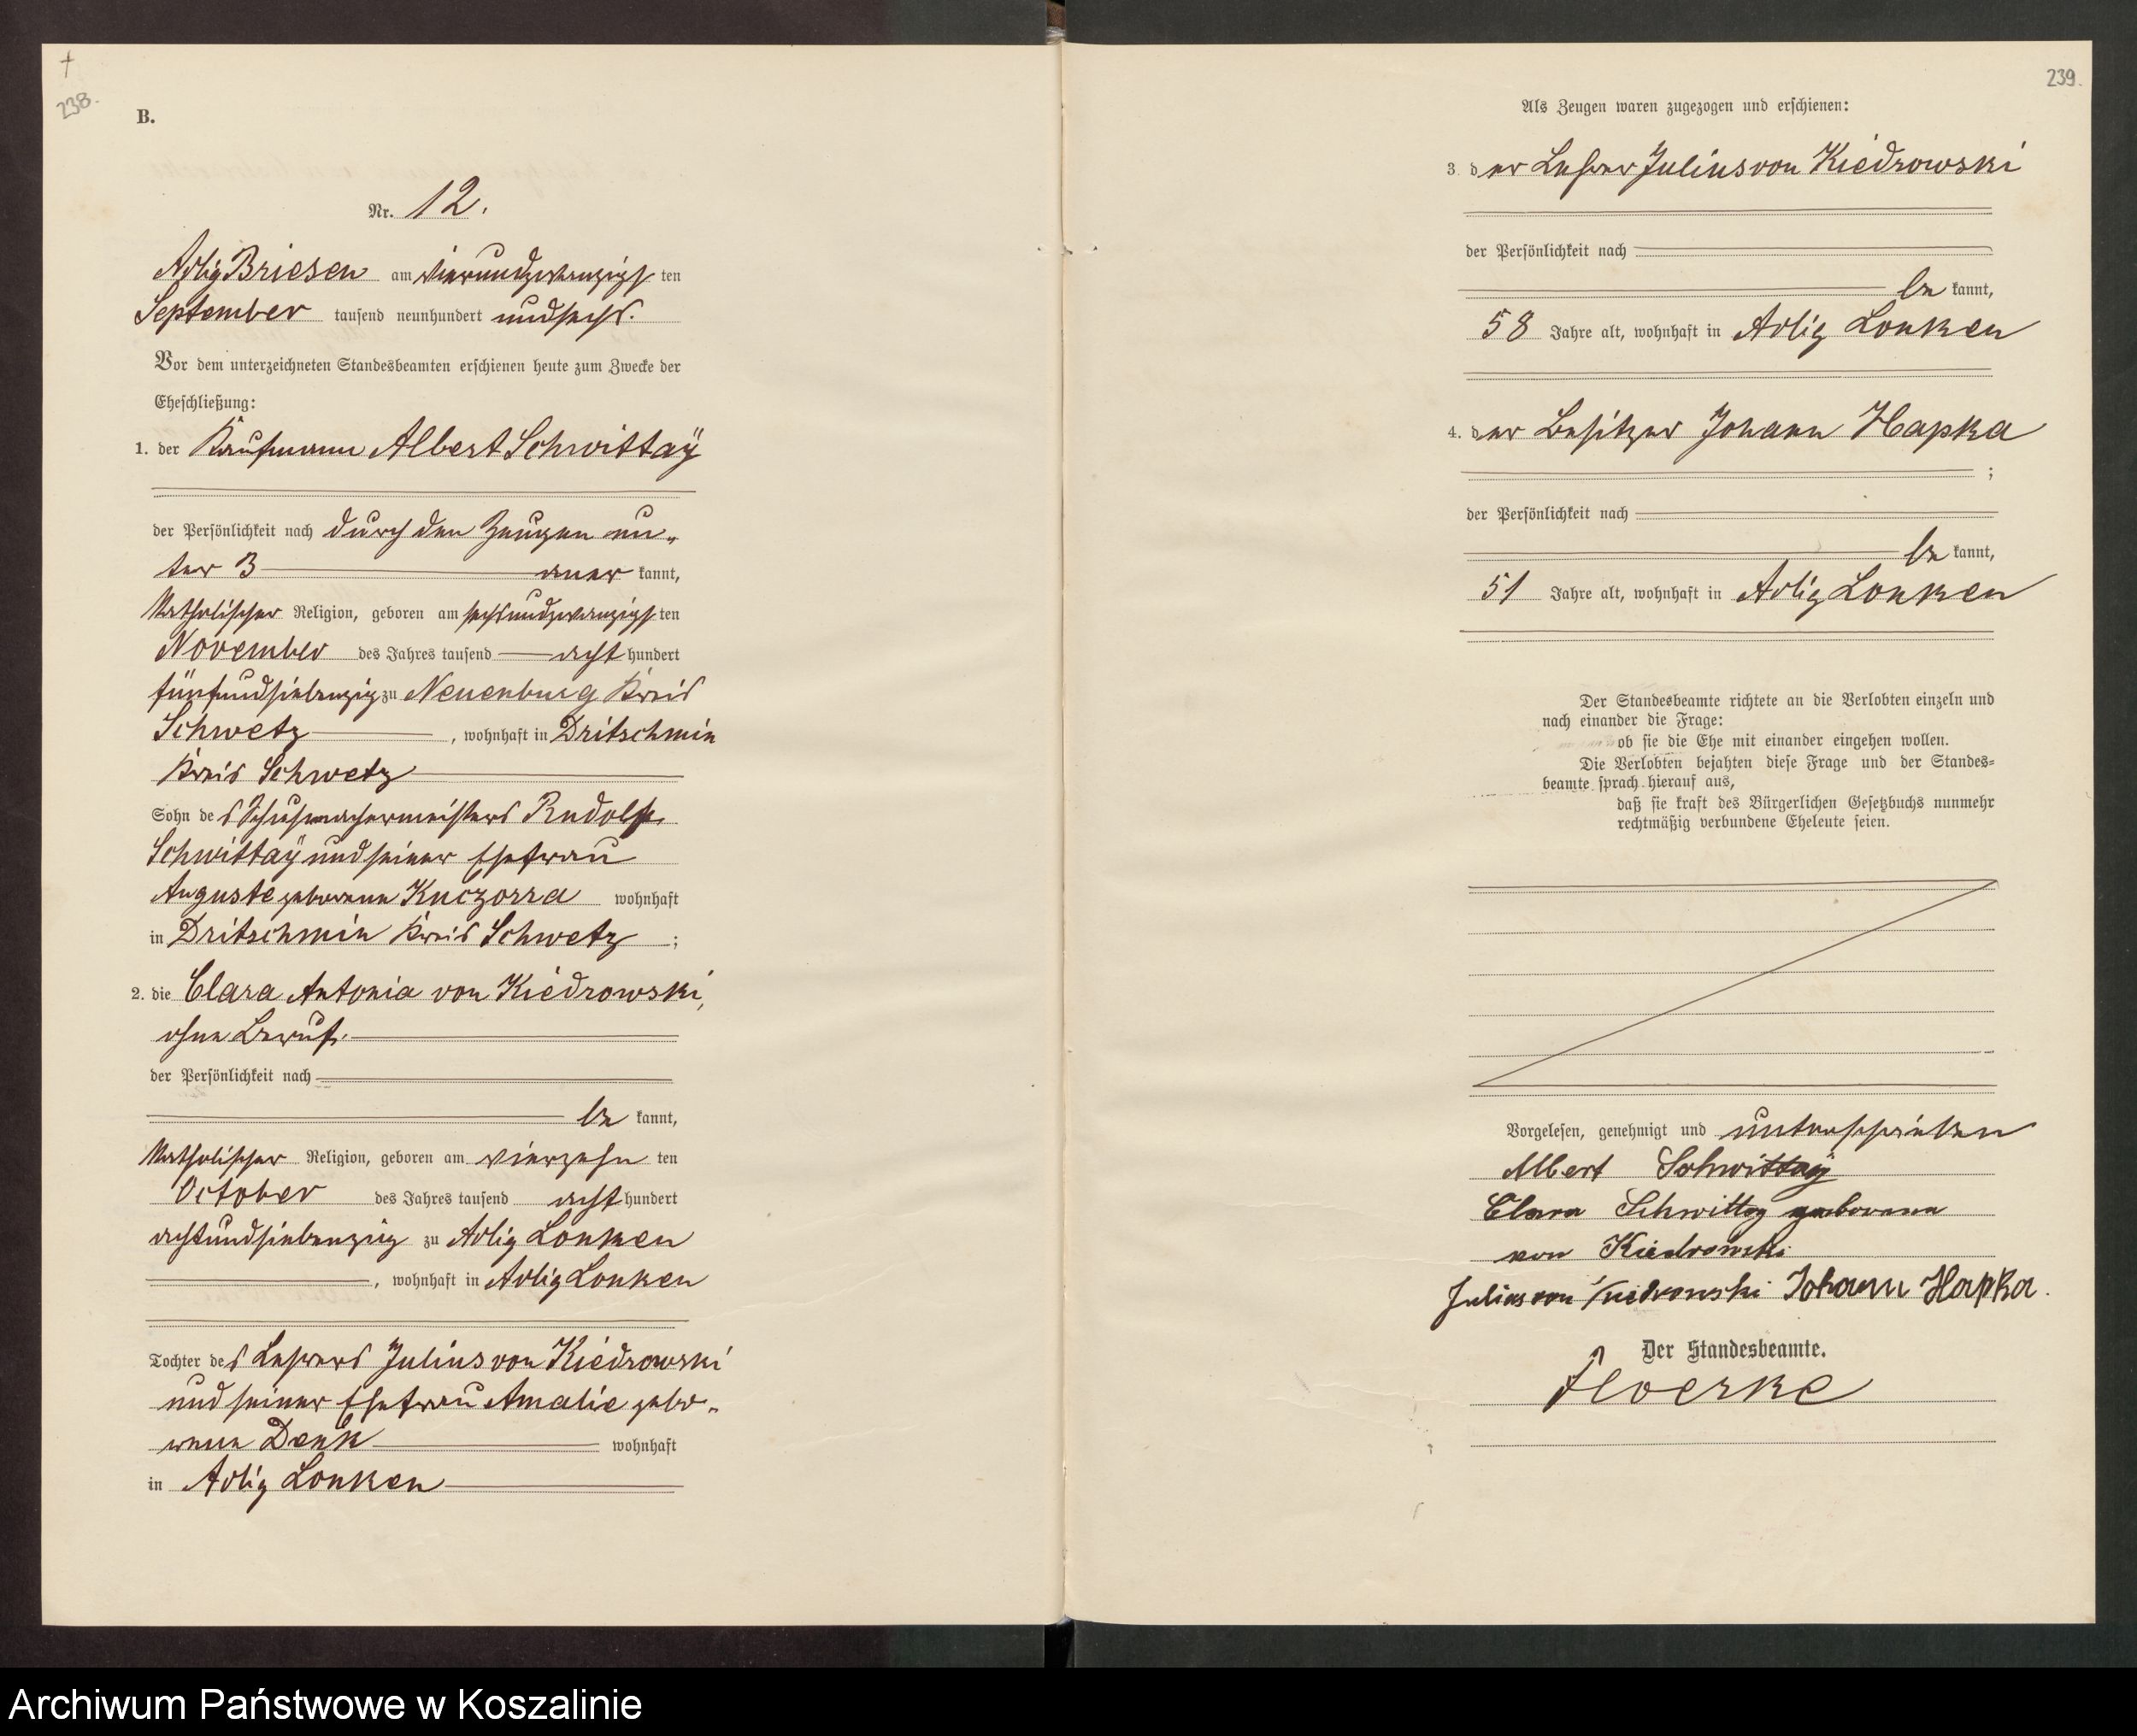 +
238.
B.
Nr. 12.
Adlig Briesen am vierundzwanzigsten
September tausend neunhundert und sechs.
Vor dem unterzeichneten Standesbeamten erschienen heute zum Zwecke der
Eheschließung:
1. der Kaufmann Albert Schwittaÿ
der Persönlichkeit nach durch den Zeugen un„
ter 3 aner kannt,
katholischer Religion, geboren am sechsundzwanzigsten
November des Jahres tausend acht hundert
fünfundsiebenzig zu Neuenburg Kreis
Schwetz, wohnhaft in Dritschmin
Kreis Schwetz
Sohn des Schuhmachermeisters Rudolf
Schwittaÿ und seiner Ehefrau
Auguste geborene Kuczorra wohnhaft
in Dritschmin Kreis Schwetz;
2. die Clara Antonia von Kiedrowski,
ohne Beruf.
der Persönlichkeit nach
be kannt,
katholischer Religion, geboren am vierzehn ten
October des Jahres tausend acht hundert
achtundsiebenzig zu Adlig Lonken
, wohnhaft in Adlig Lonken
Tochter des Lehrers Julius von Kiedrowski
und seiner Ehefrau Amalie gebo„
rene Denk wohnhaft
in Adlig Lonken
239.
Als Zeugen waren zugezogen und erschienen:
3. der Lehrer Julius von Kiedrowski
der Persönlichkeit nach
be kannt,
58 Jahre alt, wohnhaft in Adlig Lonken
4. der Besitzer Johann Hapka
;
der Persönlichkeit nach
be kannt,
51 Jahre alt, wohnhaft in Adlig Lonken
Der Standesbeamte richtete an die Verlobten einzeln und
nach einander die Frage:
ob sie die Ehe mit einander eingehen wollen.
Die Verlobten bejahten diese Frage und der Standes=
beamte sprach hierauf aus,
daß sie kraft des Bürgerlichen Gesetzbuchs nunmehr
rechtmäßig verbundene Eheleute seien.
Vorgelesen, genehmigt und unterschrieben
Albert Schwittaÿ
Clara Schwittay geborene
von Kiedrowski
Julius von Kiedrowski Johann Hapka.
Der Standesbeamte.
Floerke
Archiwum Państwowe w Koszalinie